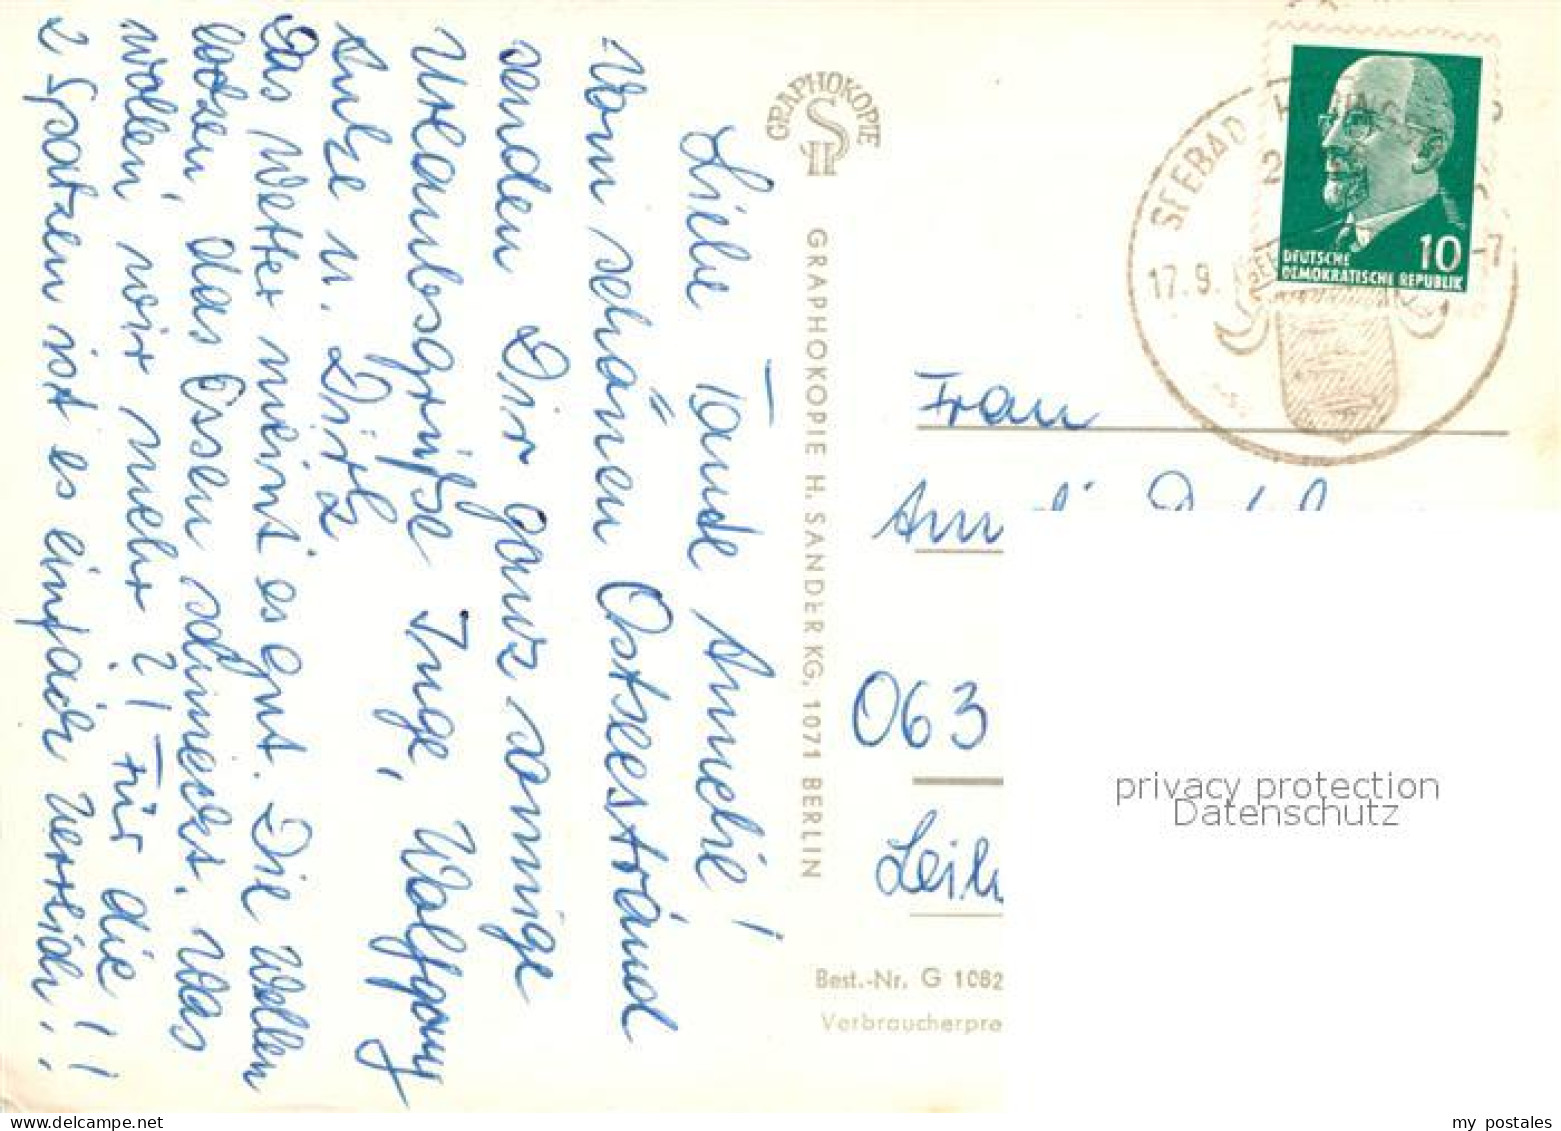 Liebe Tande Annelie!
Vom schönen Ostseestrand
senden Dir ganz sonnige
Urlaubsgrüße Inge, Wolfgang
Anke u. Dirk
Das Wetter meint es gut. Die Wellen
lotzen, das Essen schmeckt. Was
wollen wir mehr?! Für die
2 Spatzen ist es einfach herrlich!!
GRAPHOKOPIE
H S
GRAPHOKOPIE H. SANDER KG, 1071 BERLIN
SEEBAD
17.9.
-7
10
DEUTSCHE
DEMOKRATISCHE REPUBLIK
Frau
063
Best.-Nr. G 1082
Verbraucherpre
privacy protection
Datenschutz
my postales